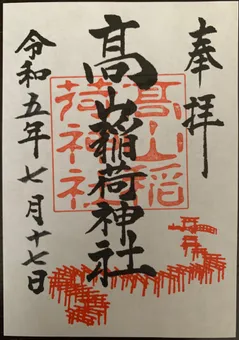 奉拝
高山稲荷神社
令和五年七月十七日
高山稲
荷神社